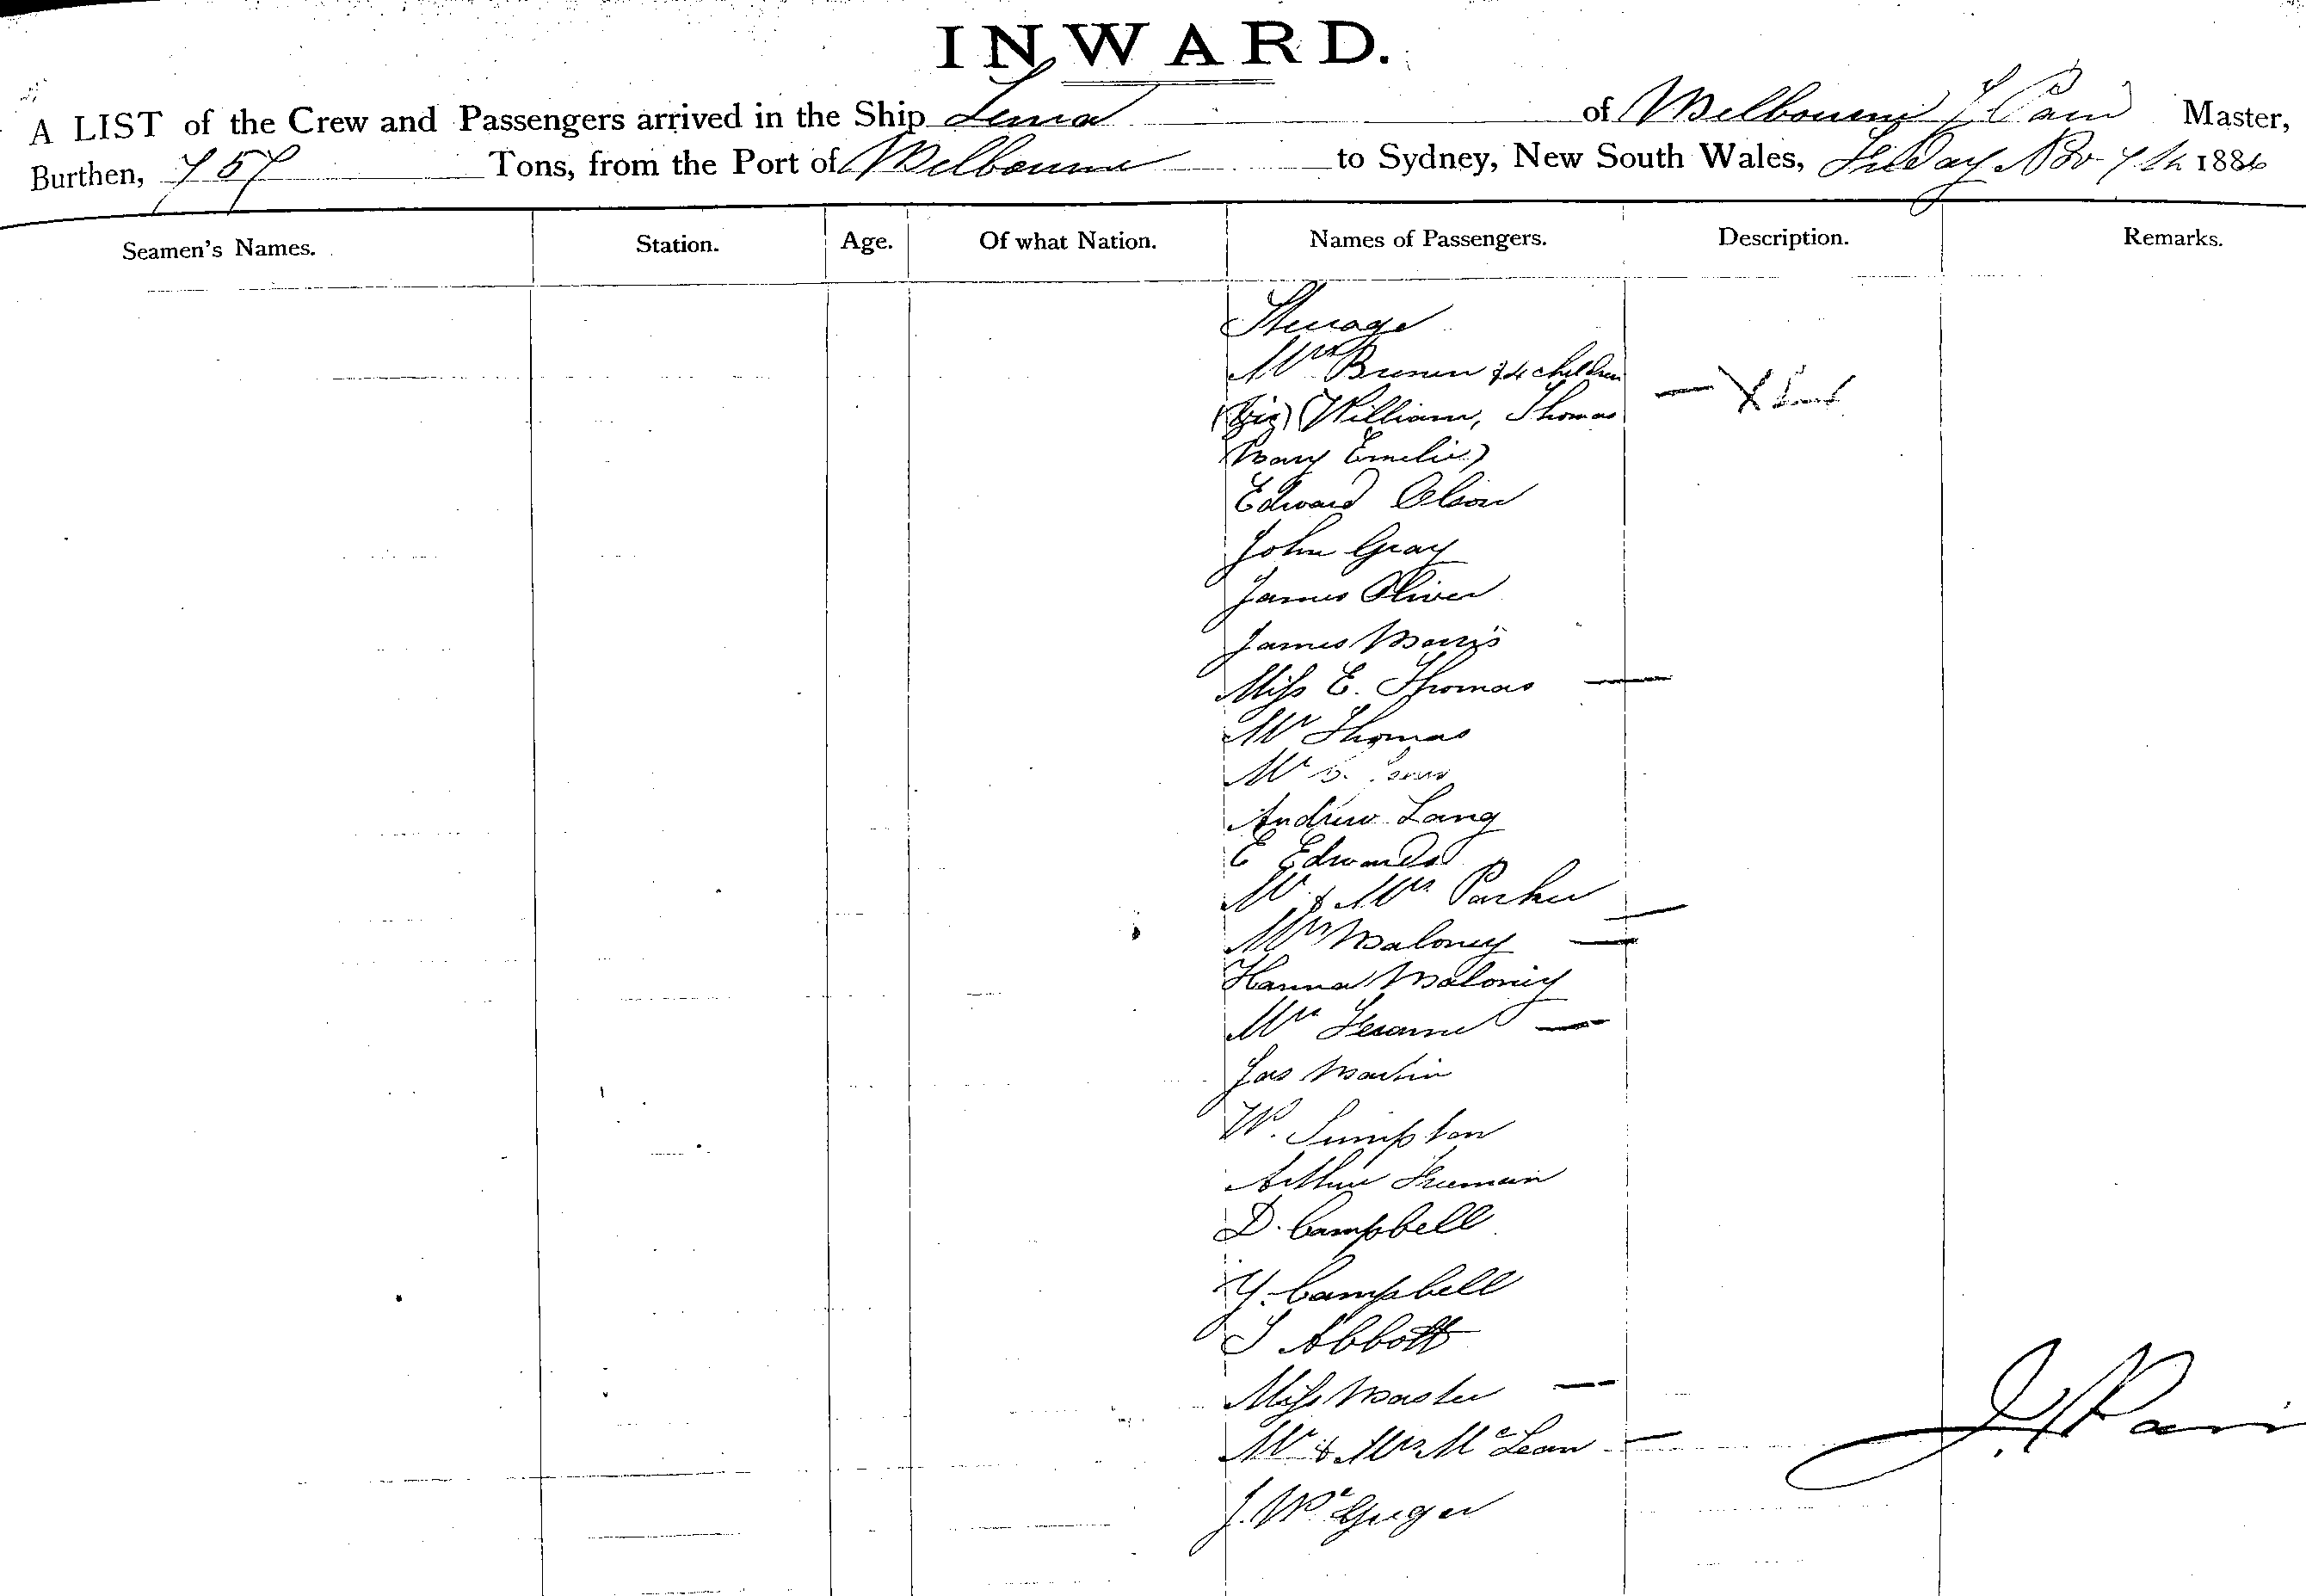 INWARD.
A LIST of the Crew and Passengers arrived in the Ship of Melbourne Master,
Burthen, 757 Tons, from the Port of Melbourne to Sydney, New South Wales, Friday Nov 7th 188
Seamen's Names. Station. Age. Of what Nation. Names of Passengers. Description. Remarks.
Steerage
Mrs & 4 children
(Viz) (William, Thomas
Mary Emelie)
Edward Olson
John Gray
James Oliver
James Morris
Miss E. Thomas
Mr Thomas
Mr
Andrew Lang
E Edwards
Mr & Mrs Parker
Mrs Maloney
Hanna Maloney
Mrs
Jas Martin
W. Simpton
Arthur Freeman
D. Campbell
Y. Campbell
J Abbott
Miss Master
Mr & Mrs McLean
J. McGregor